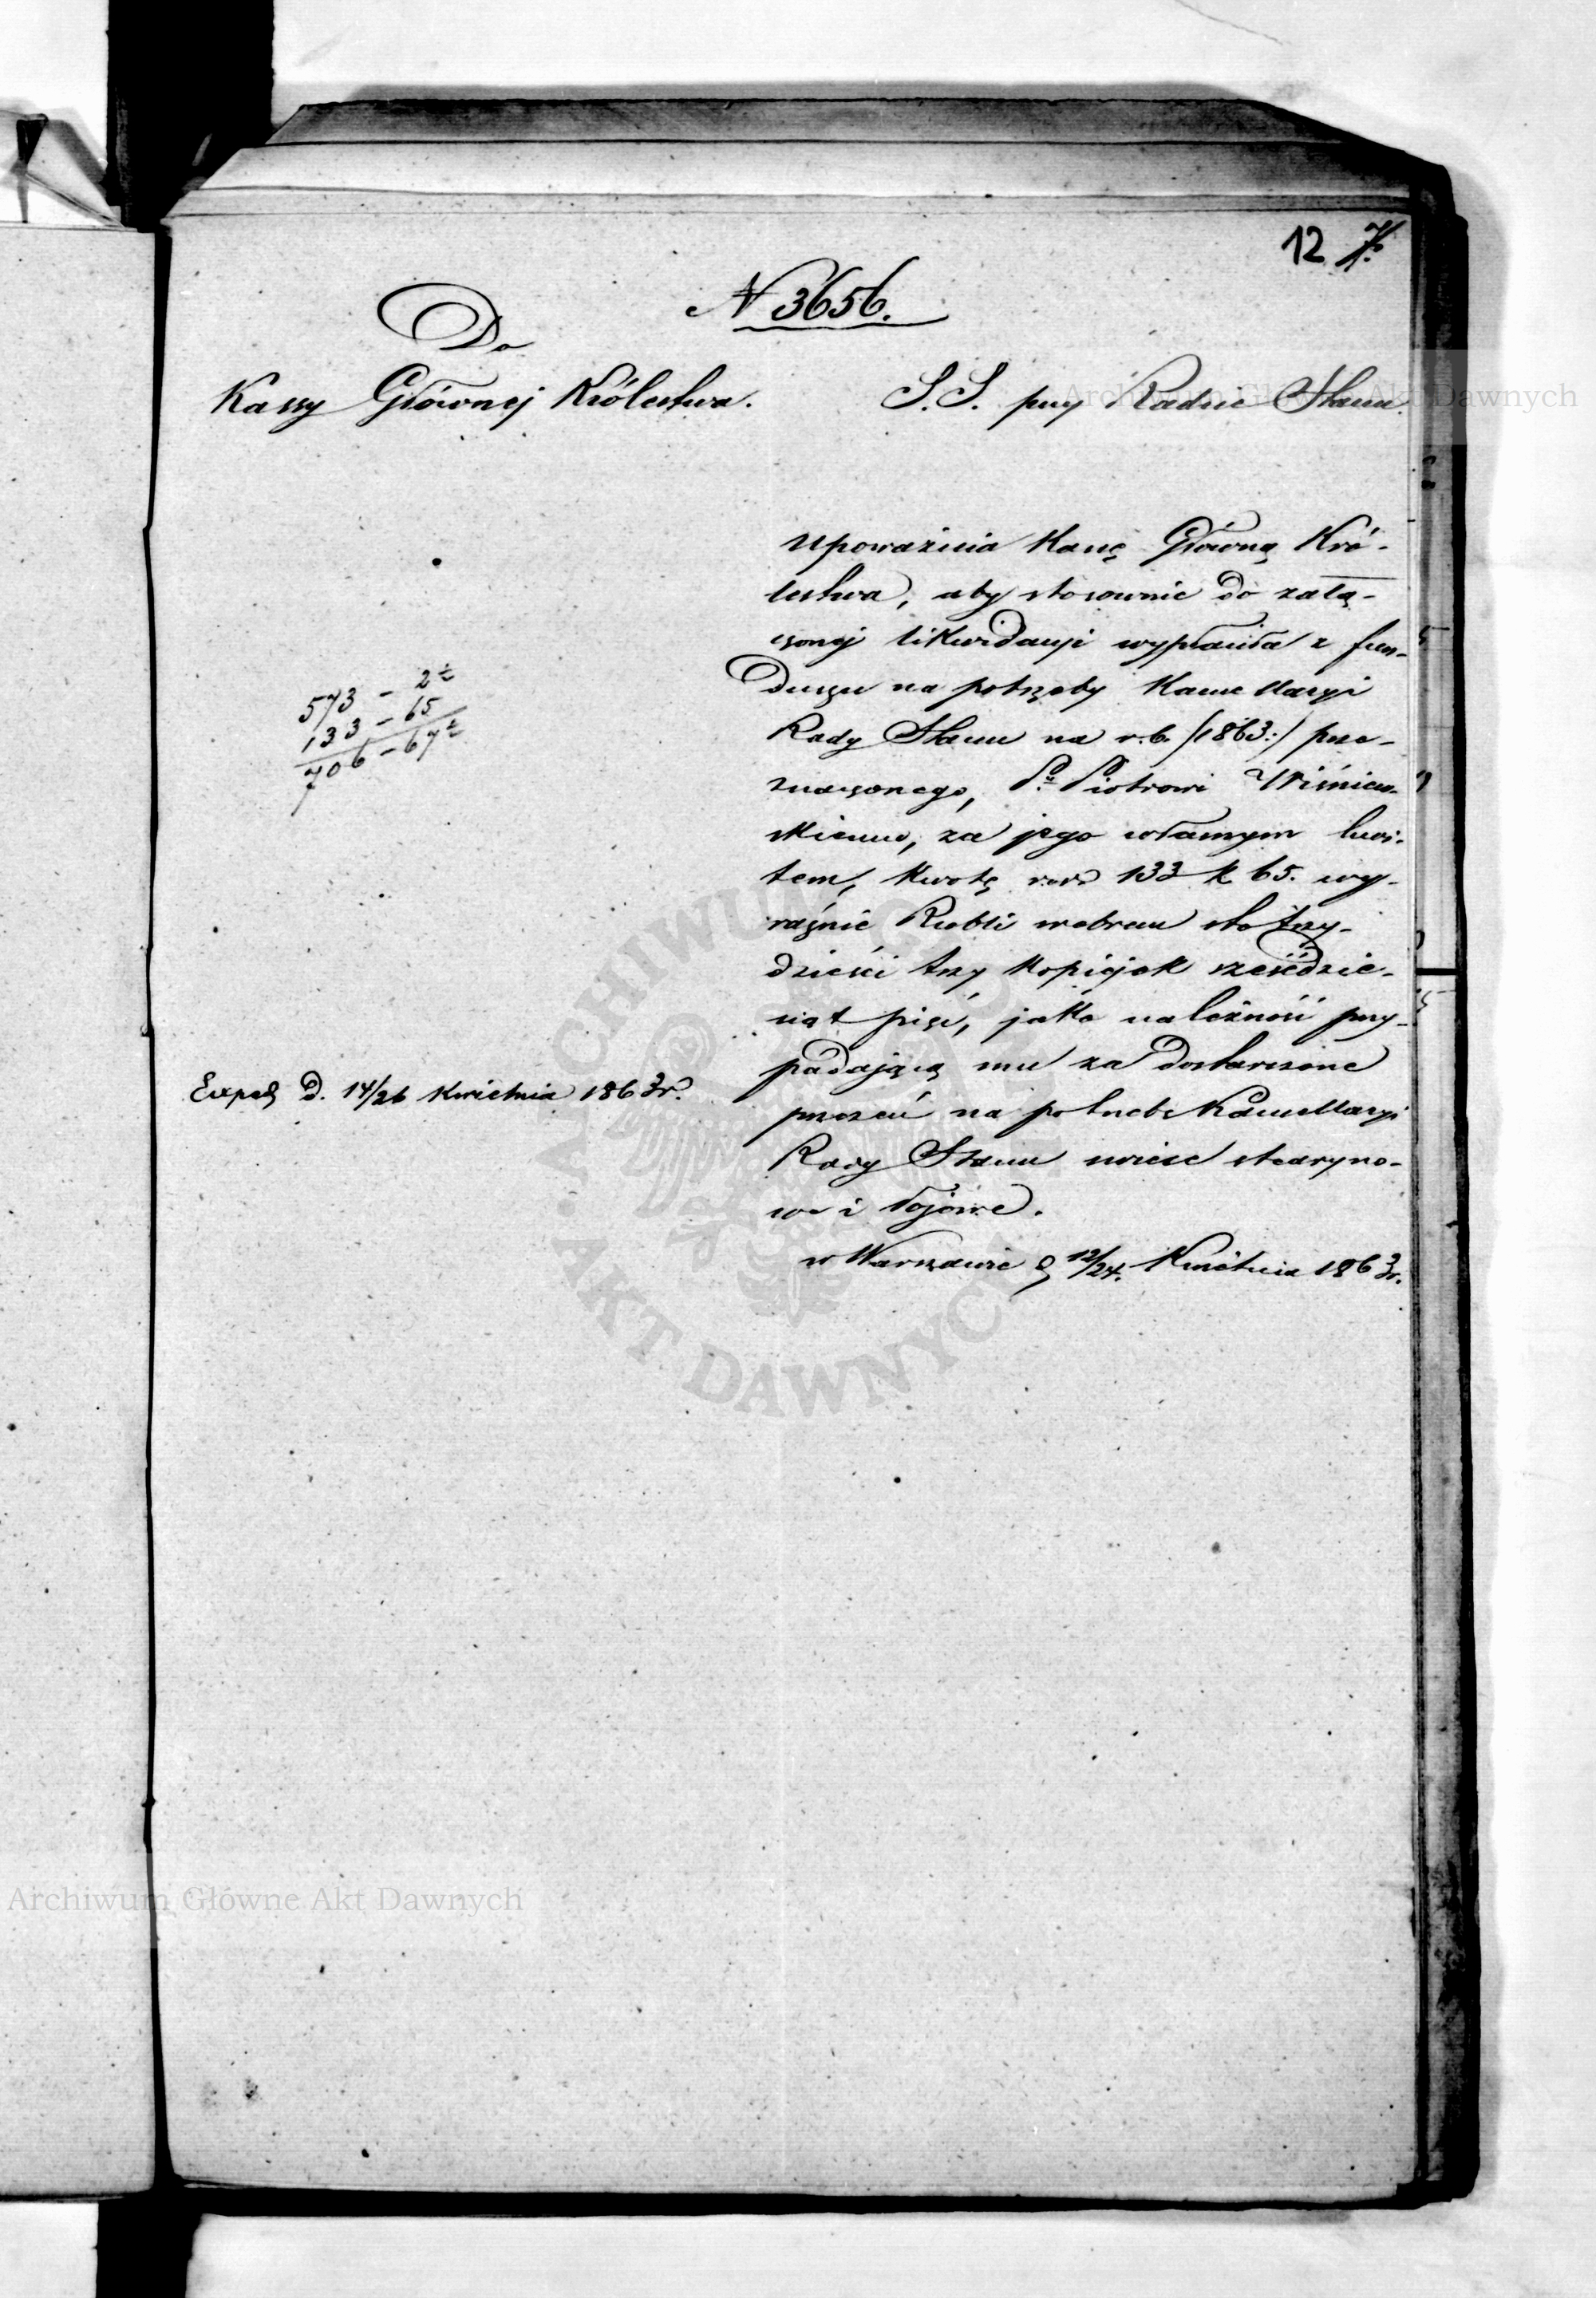 12 7.
N 3656.
Do
Kassy Głównej Królestwa.
S. S. przy Radzie Stanu.
Upoważnia Kassę Główną Kró-
lestwa, aby stosownie do załą-
czonej likwidacyi wypłaciła z fun-
duszu na potrzeby Kancellaryi
Rady Stanu na r. b. /1863:/ prze-
znaczonego, P. Piotrowi Wiśniew-
skiemu, za jego własnym kwi-
tem, kwotę rsr. 133 k 65. wy-
raźnie Rubli srebrem sto trzy-
dzieści trzy kopiejek sześćdzie-
siąt pięć, jako należność przy-
padającą mu za dostarczone
przezeń na potrzebę Kancellaryi
Rady Stanu świece stearyno-
we i łojowe.
w Warszawie d. 12/24. Kwietnia 1863 r.
573 - 2½
133 - 65
706 - 67½
Exped. d. 14/26 Kwietnia 1863 r.
Archiwum Główne Akt Dawnych
Archiwum Główne Akt Dawnych
ARCHIWUM
AKT DAWNYCH